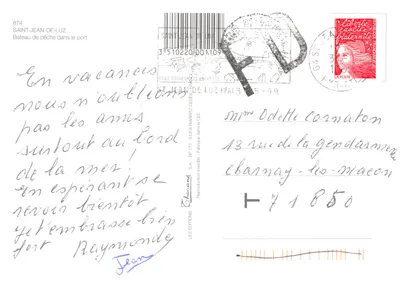 874
SAINT-JEAN-DE-LUZ
Bateau de pêche dans le port
En vacances
nous n'oublions
pas les amis
surtout au bord
de la mer !
En espérant se
revoir bientôt
je t'embrasse bien
fort Raymonde
Jean
3 510220 001109
LES EDITIONS
FD
liberté
égalité
fraternité
Mme Odette Cornaton
13 rue de la gendarmerie
Charnay-les-Macon
T 71850